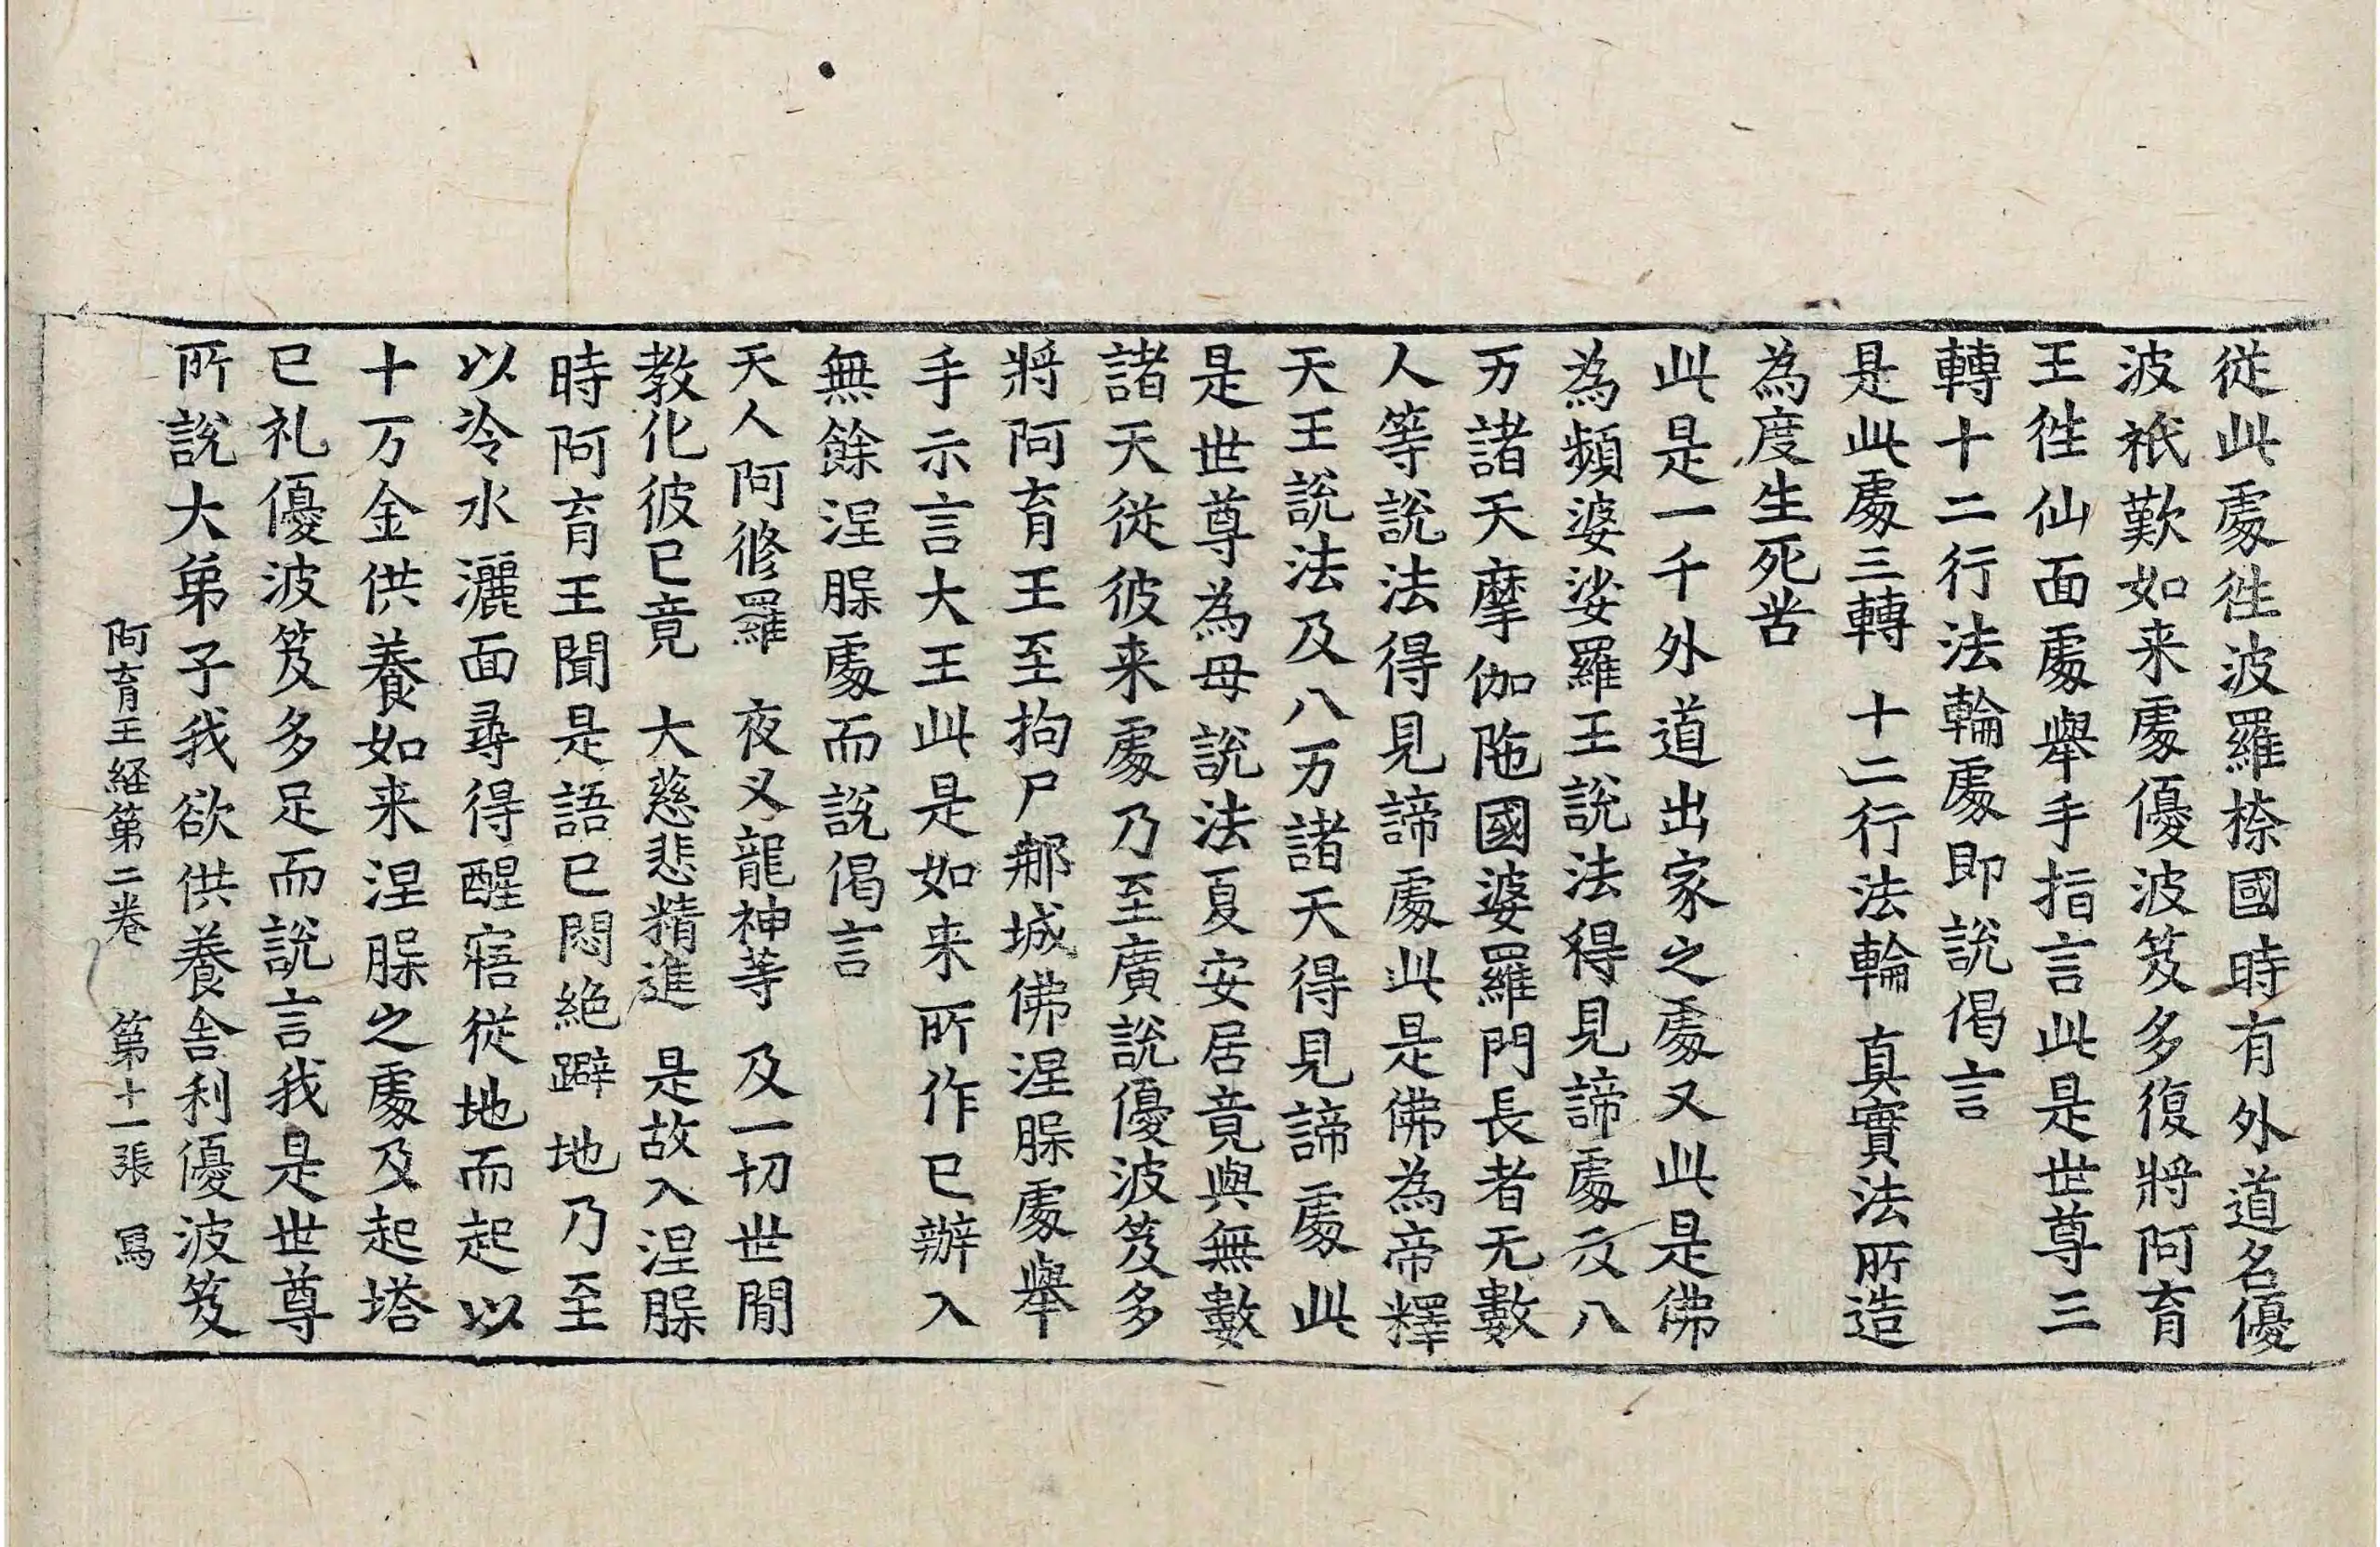 從此處徃波羅㮈國時有外道名優
波祇歎如来處優波笈多復將阿育
王徃仙面處舉手指言此是世尊三
轉十二行法輪處即說偈言
是此處三轉　十二行法輪　真實法所造
為度生死苦
此是一千外道出家之處又此是佛
為頻婆娑羅王說法得見諦處及八
万諸天摩伽陁國婆羅門長者无數
人等說法得見諦處此是佛為帝釋
天王說法及八万諸天得見諦處此
是世尊為母說法夏安居竟與無數
諸天從彼来處乃至廣說優波笈多
將阿育王至拘尸那城佛涅槃處舉
手示言大王此是如来所作已辦入
無餘涅槃處而說偈言
天人阿脩羅　夜叉龍神等　及一切世閒
教化彼已竟　大慈悲精進　是故入涅槃
時阿育王聞是語已悶絶躃地乃至
以冷水灑面尋得醒寤從地而起以
十万金供養如来涅槃之處及起塔
已礼優波笈多足而說言我是世尊
所說大弟子我欲供養舍利優波笈
阿育王経第二卷　第十一張　寫